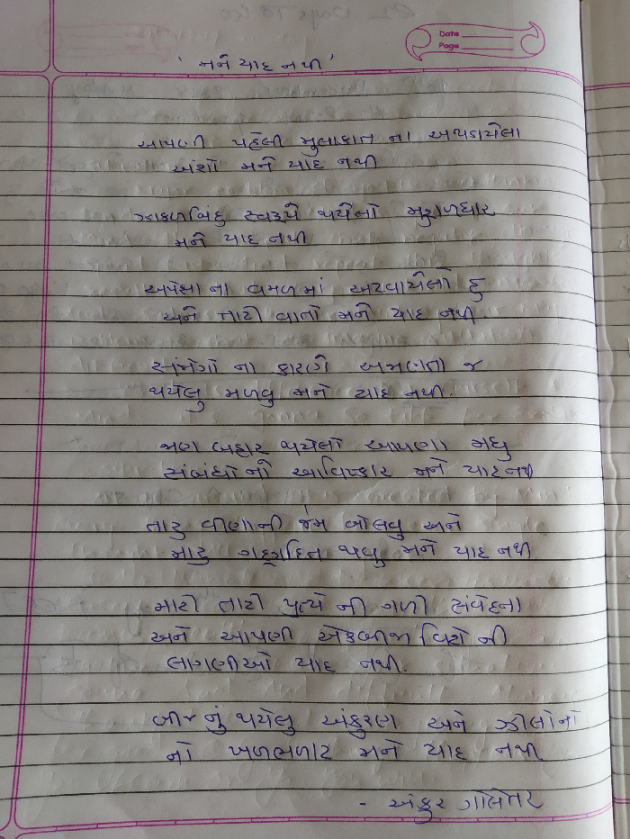 Date
Page
' મને યાદ નથી '
આપણી પહેલી મુલાકાત ના અથડાયેલા
અંશો મને યાદ નથી
ઝાકળબિંદુ સ્વરૂપે થયેલો મુશળધાર
મને યાદ નથી
અપેક્ષા ના વમળમાં અટવાયેલો હુ
અને તારી વાતો મને યાદ નથી.
સંજોગો ના કારણે અમણતો જ
થયેલુ મળવુ મને યાદ નથી.
જાણ બહાર થયેલો આપણા મધુ
સંબંધોનો આવિષ્કાર મને યાદ નથી
તારુ વીણાની જેમ બોલવુ અને
મારુ ગદ્દગદિત થવુ મને યાદ નથી
મારી તારી પ્રત્યે ની ગળી સંવેદના
અને આપણી એકબીજા વિશે ની
લાગણીઓ યાદ નથી.
બીજ નું થયેલુ અંકુરણ અને ઝીલોનો
નો ખળભળાટ મને યાદ નથી
- અંકુર ગોલેતર